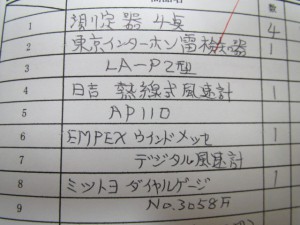 数
1 測定器 4臭 4
2 東京インターホン電機器
3 LA-P2型
4 日吉 熱線式風速計 1
5 AP110
6 EMPEX ウインドメッセ 1
7 デジタル風速計
8 ミツトヨ ダイヤルゲージ 1
9 No.3058F